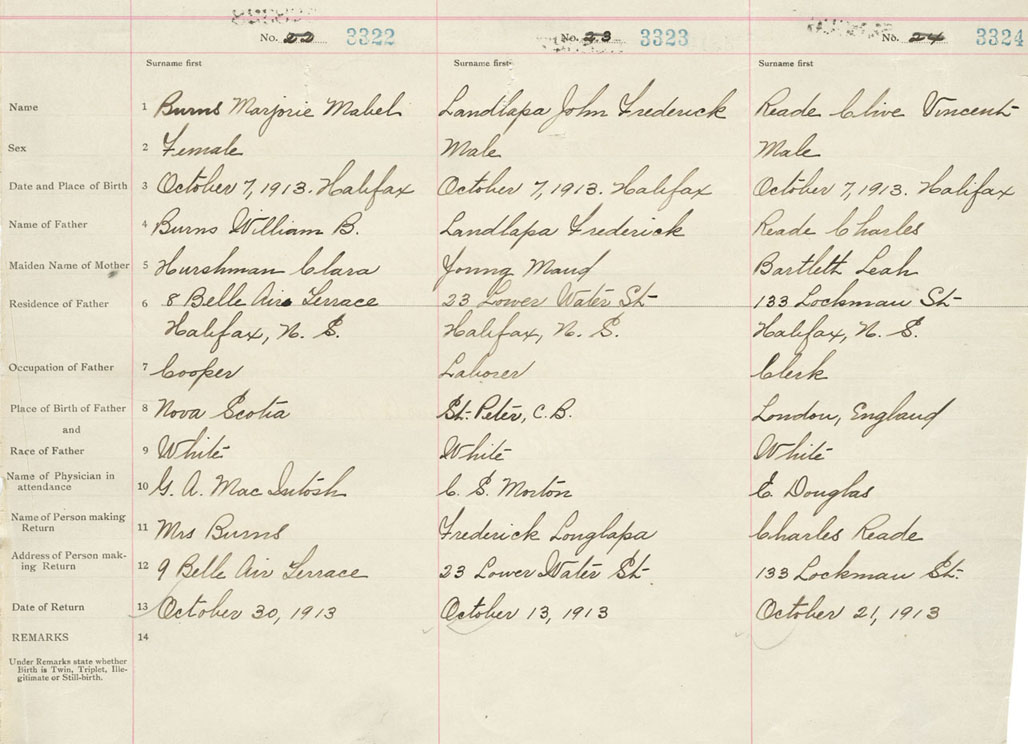 No. 22 3322 No. 23 3323 No. 24 3324
Surname first Surname first Surname first
Name 1 Burns Marjorie Mabel Landlapa John Frederick Reade Clive Vincent
Sex 2 Female Male Male
Date and Place of Birth 3 October 7, 1913. Halifax October 7, 1913. Halifax October 7, 1913. Halifax
Name of Father 4 Burns William B. Landlapa Frederick Reade Charles
Maiden Name of Mother 5 Hurshman Clara Young Maud Bartlett Leah
Residence of Father 6 8 Belle Air Terrace 23 Lower Water St. 133 Lockman St.
Halifax, N. S. Halifax, N. S. Halifax, N. S.
Occupation of Father 7 Cooper Laborer Clerk
Place of Birth of Father 8 Nova Scotia St. Peter, C.B. London, England
and
Race of Father 9 White White White
Name of Physician in
attendance 10 G. A. Mac Intosh C. S. Morton E. Douglas
Name of Person making
Return 11 Mrs Burns Frederick Longlapa Charles Reade
Address of Person mak-
ing Return 12 9 Belle Air Terrace 23 Lower Water St. 133 Lockman St.
Date of Return 13 October 30, 1913 October 13, 1913 October 21, 1913
REMARKS 14
Under Remarks state whether
Birth is Twin, Triplet, Ille-
gitimate or Still-birth.